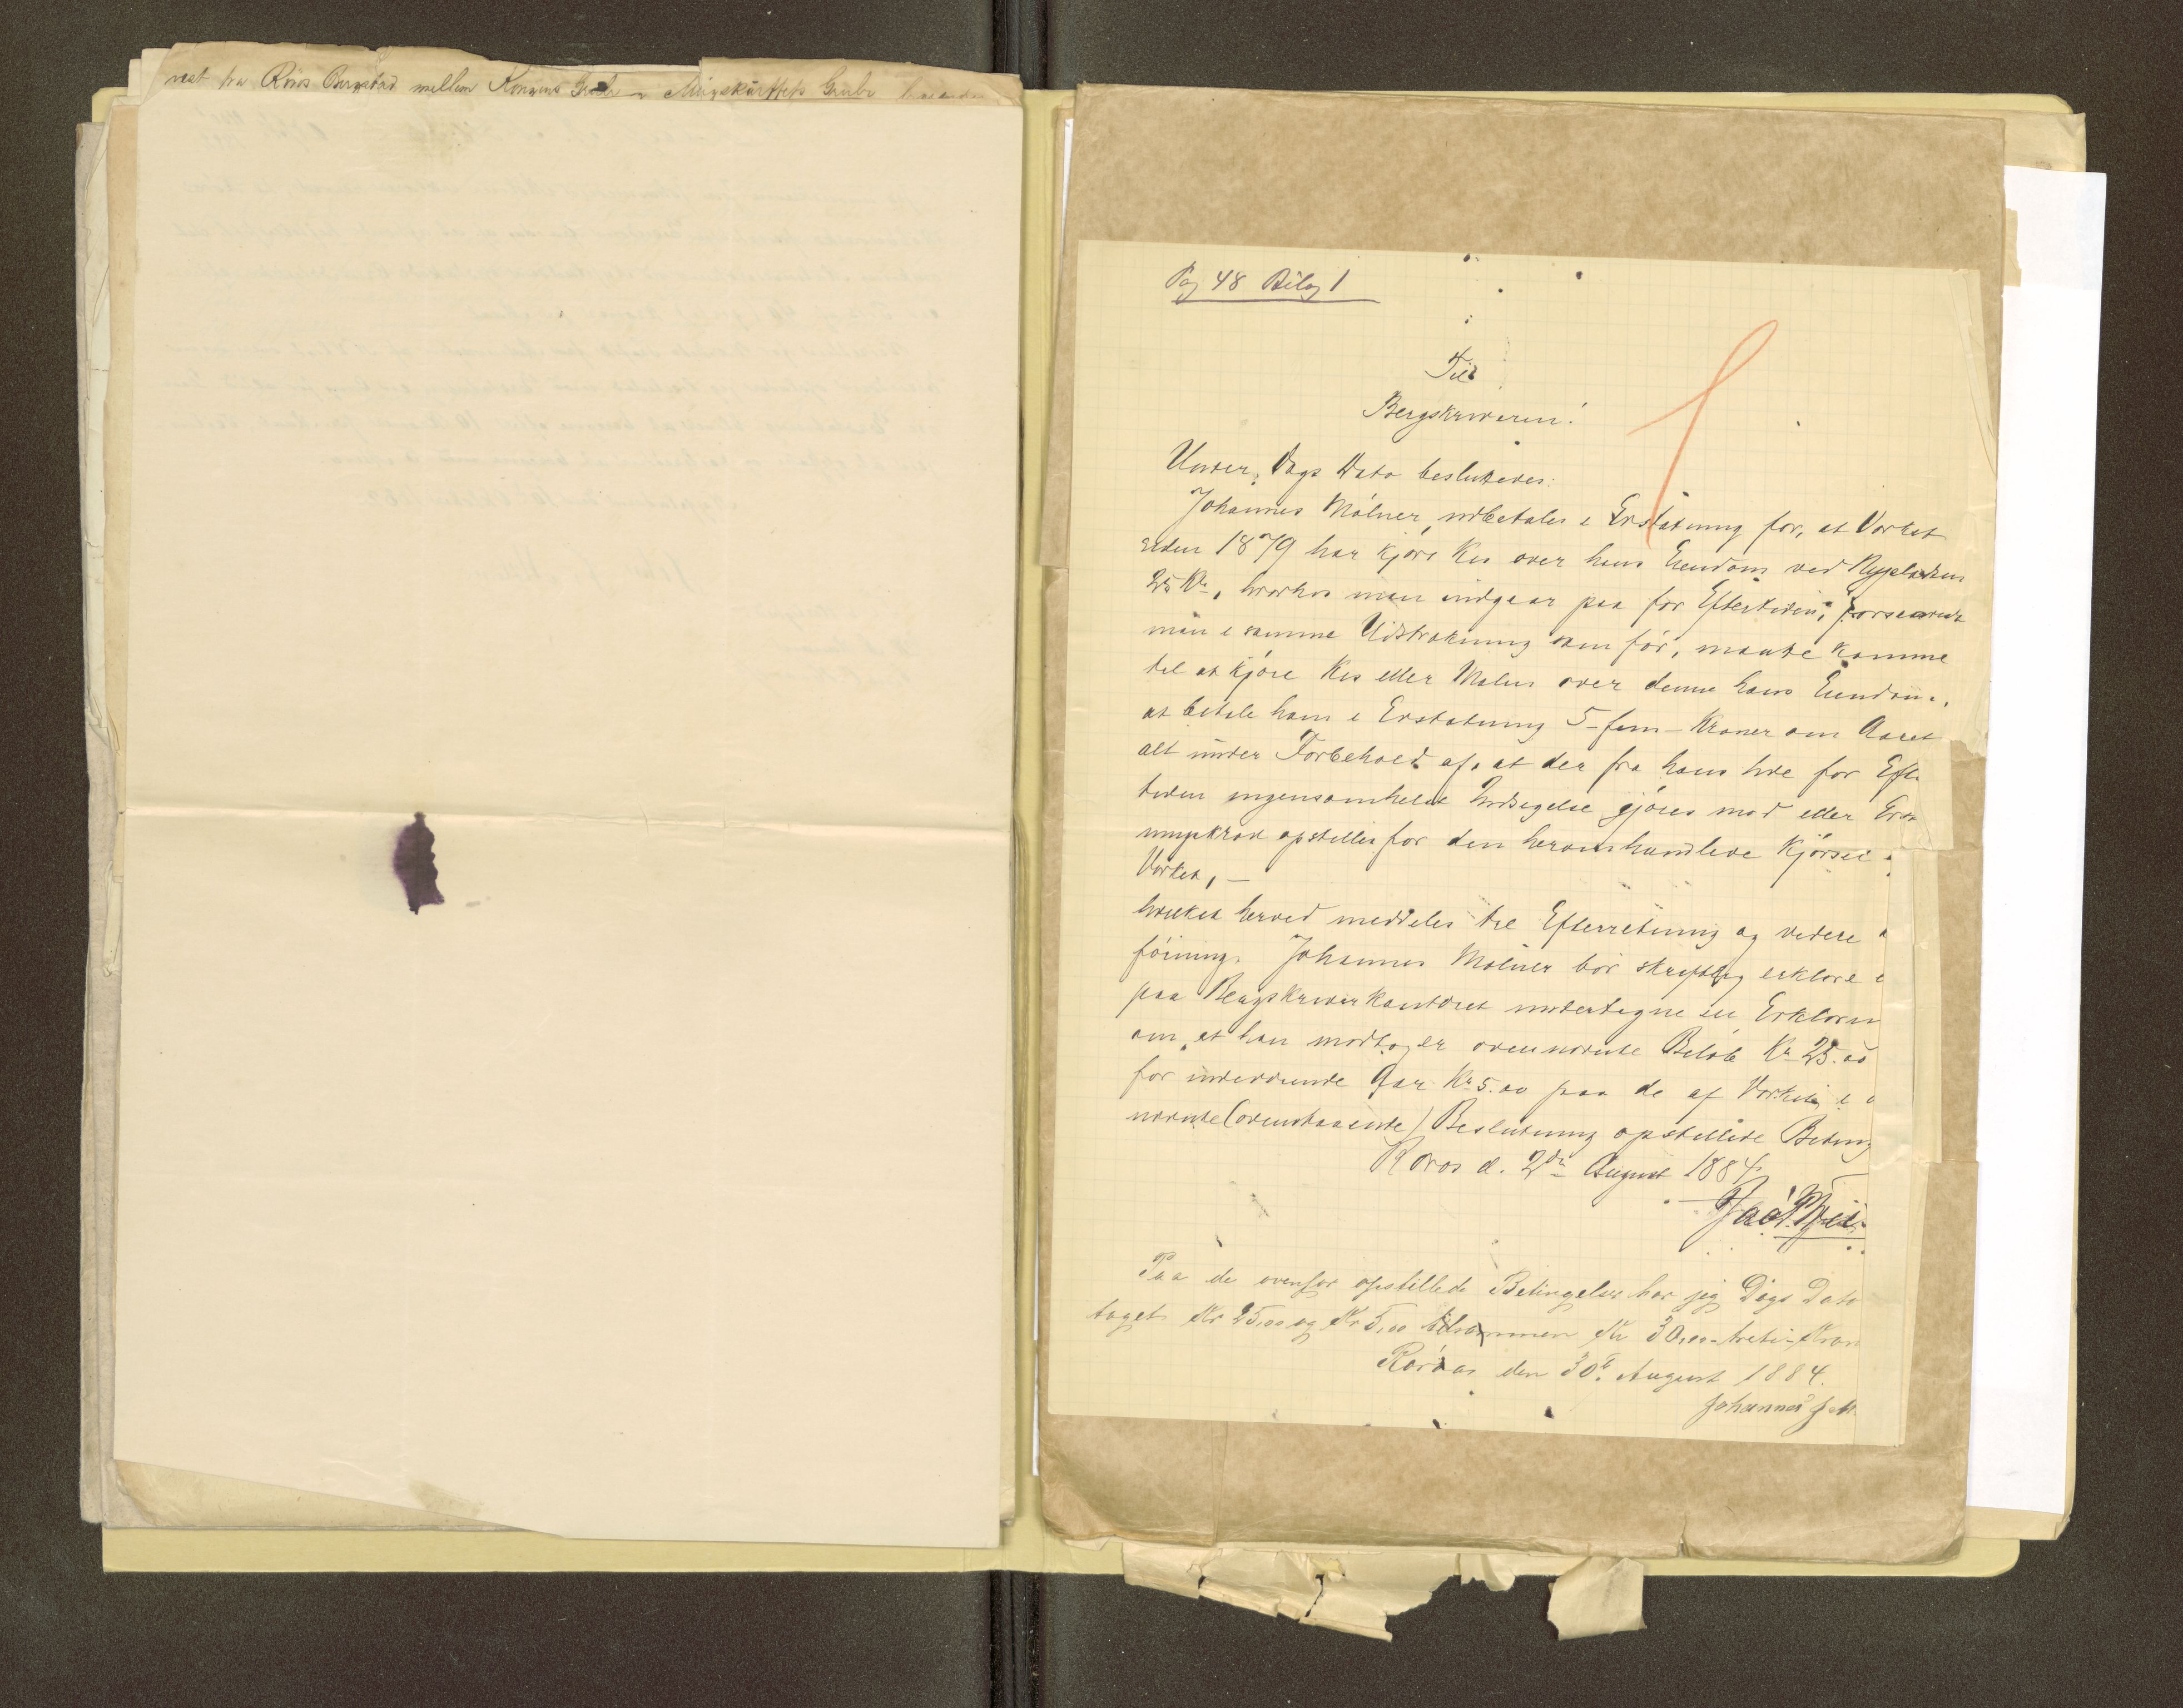 vest fra Röros Bergstad mellem Kongens Grube og Mugskärffets Grube
Pag 48 Bilag 1
Til
Bergskriveren!
Under Dags Dato besluttedes:
Johannes Mölner, udbetales i Erstatning for, at Verket
siden 1879 har kjört Kis over hans Eiendom ved Nyplassen
25 Kr, hvorhos man indgaar paa for Eftertiden, forsaavidt
man i samme Udstrækning som för, maatte komme
til at kjöre Kis eller Malm over denne hans Eiendom,
at betale ham i Erstatning 5 - fem - Kroner om Aaret
alt under Forbehold af, at der fra hans Side for Efter
tiden ingensomhelst Indsigelse gjöres mod eller Erstat
ningskrav opstilles for den heromhandlede Kjörsel
Verket, –
hvilket herved meddeles til Efterretning og videre
föining. Johannes Mölner bör skriftlig erklære
paa Bergskriverkontoret undertegne en Erklæring
om, at han modtager ovennævnte Belöb Kr 25.00
for indeværende Aar Kr 5.00 paa de af Verket i
nævnte (ovenstaaende) Beslutning opstillede Beting
Röros d. 2den August 1884
Paa de ovenfor opstillede Betingelser har jeg Dags Dato
taget Kr 25,00 og Kr 5,00 tilsammen Kr 30,00 - treti - Kron
Röraas den 30te August 1884.
Johannes J. M.